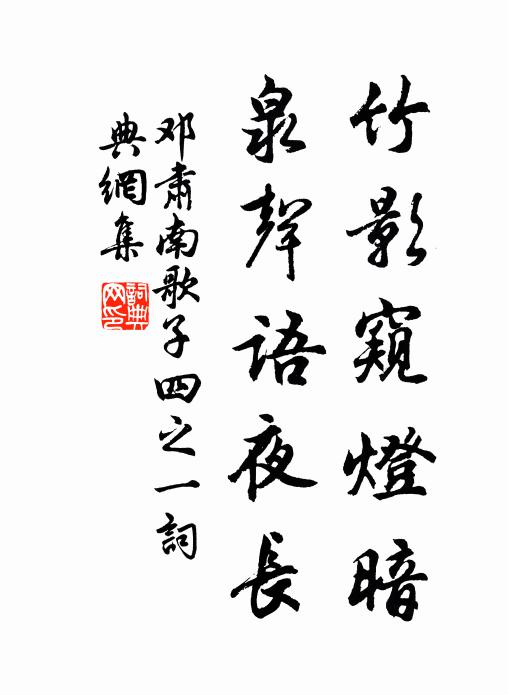 竹影窺燈暗
泉聲語夜長
邓肅南歌子四之一詞
典網集
詞典
网印